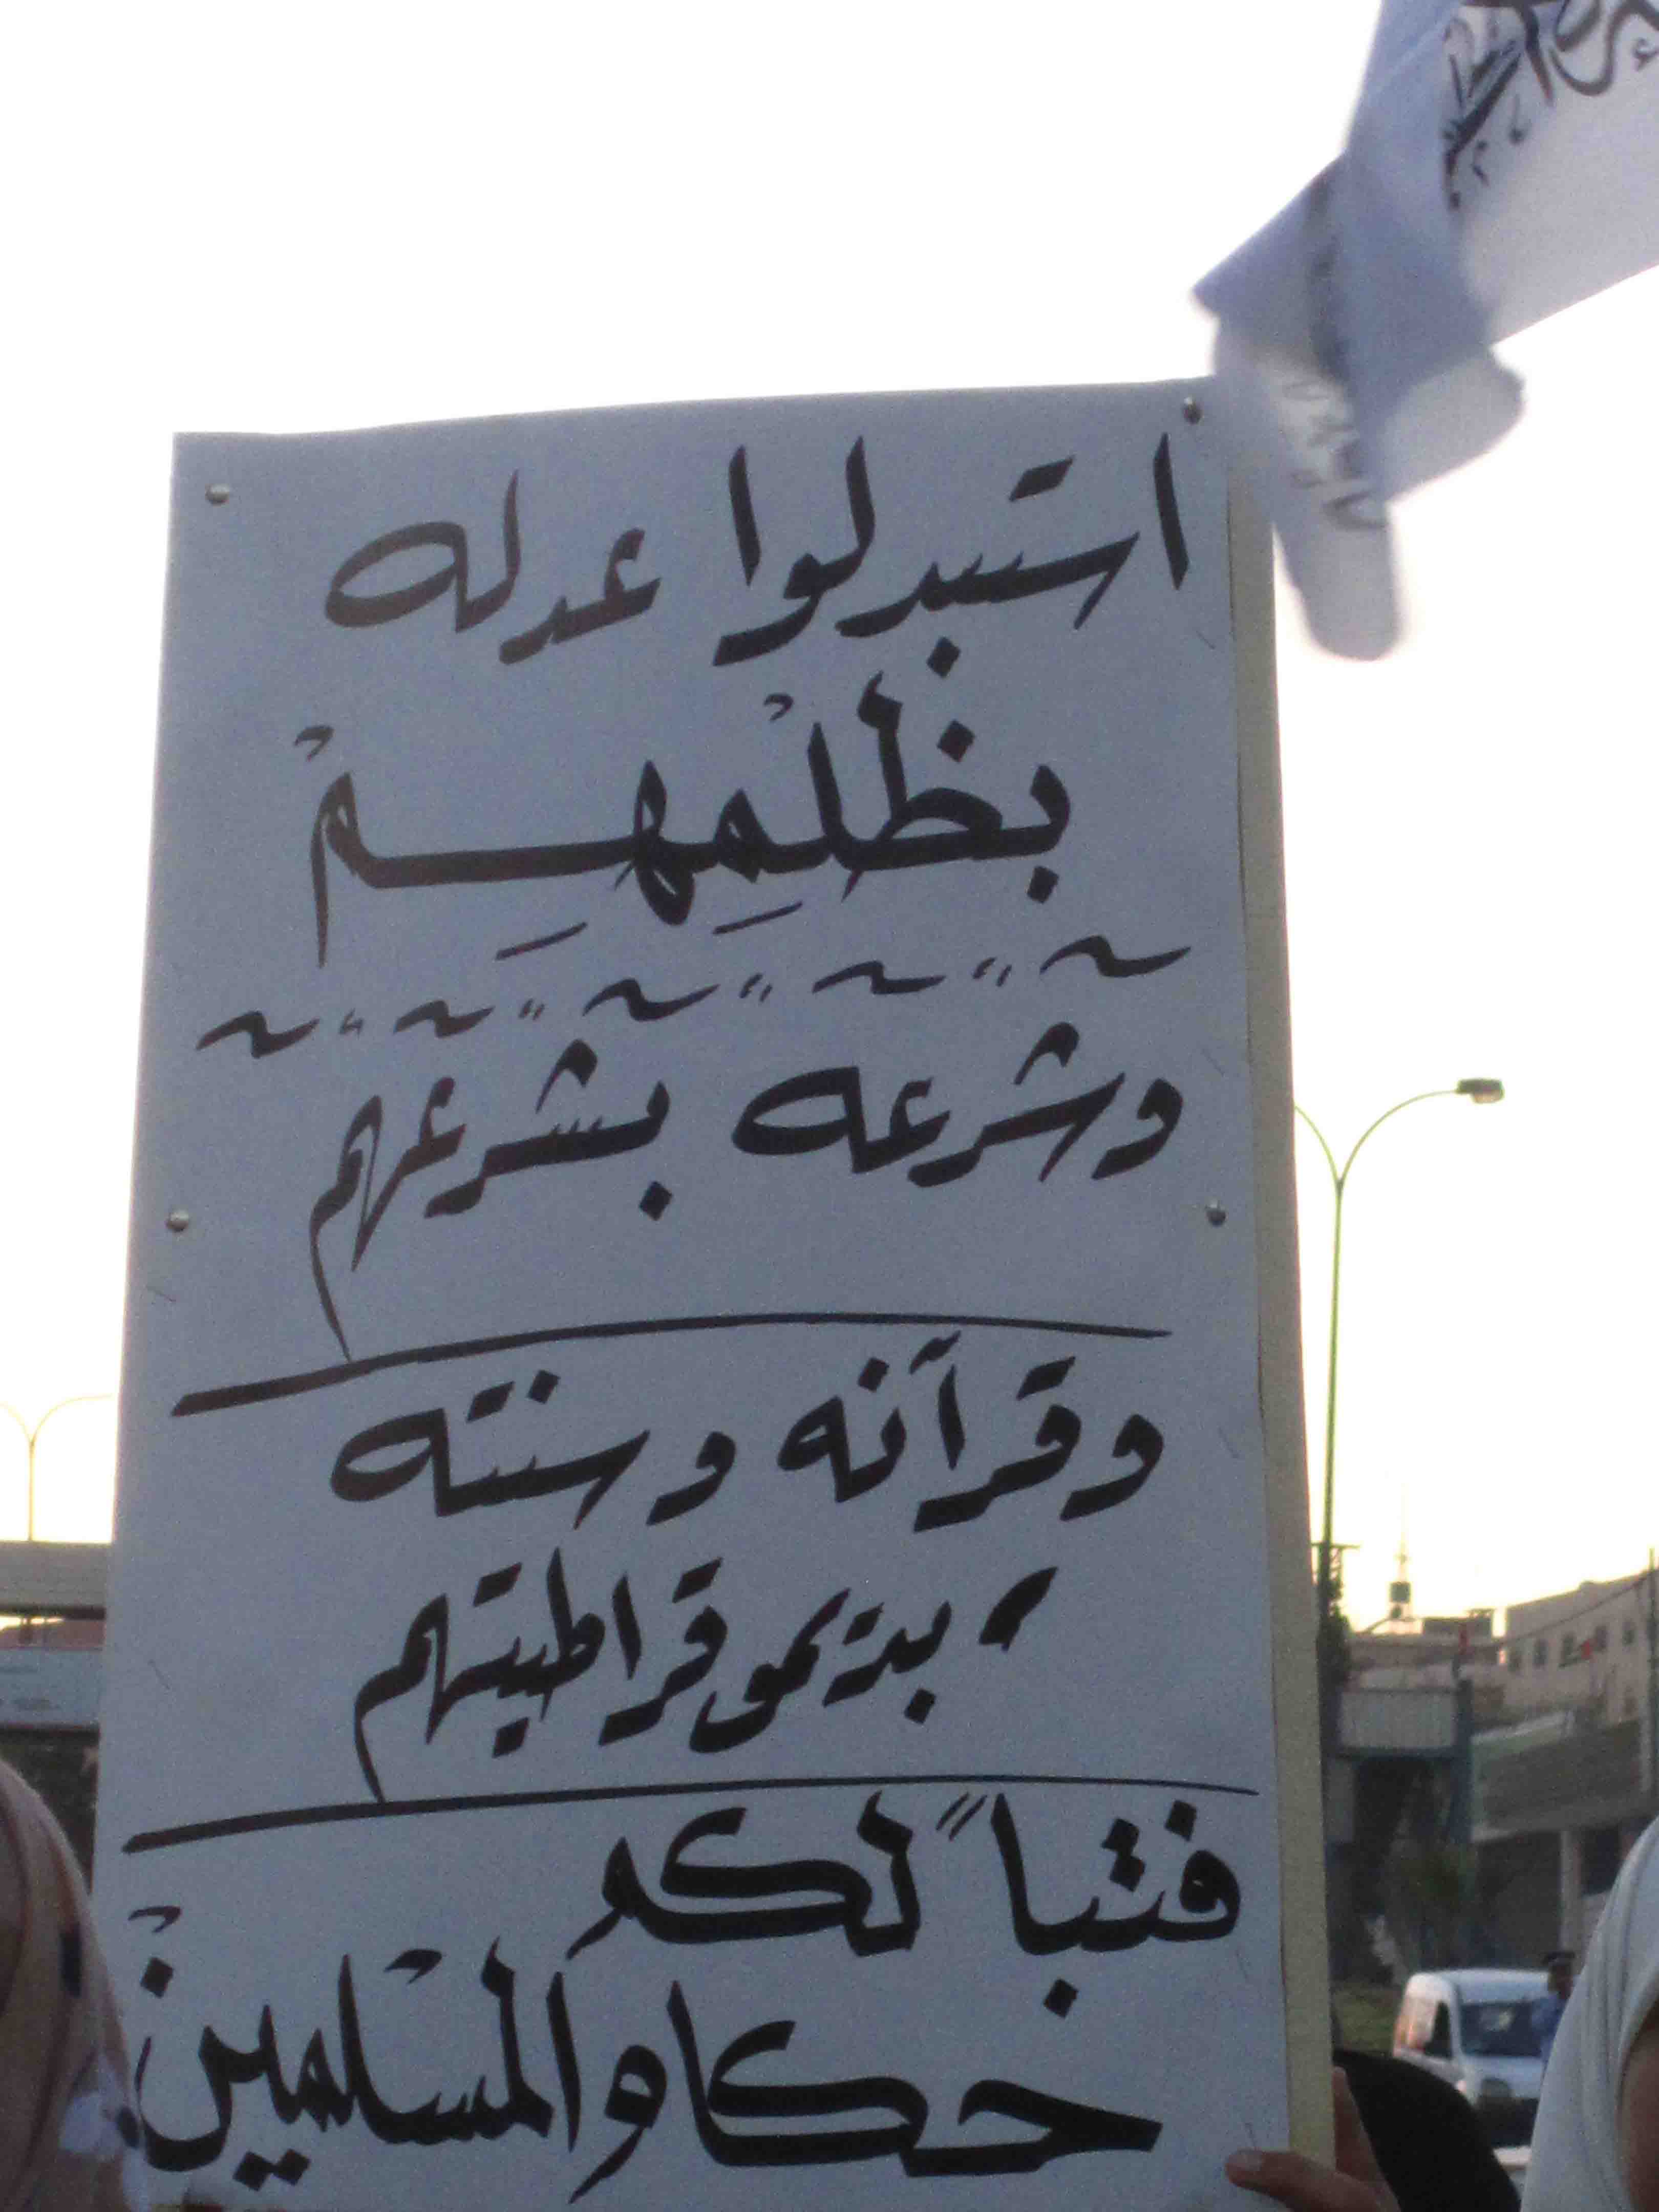 استبدلوا عدله
بظلْمِهِمْ
وشرعه بشرعهم
وقرآنه وسنته
بديموقراطيتهم
فتباً لكم
حكام المسْلمين